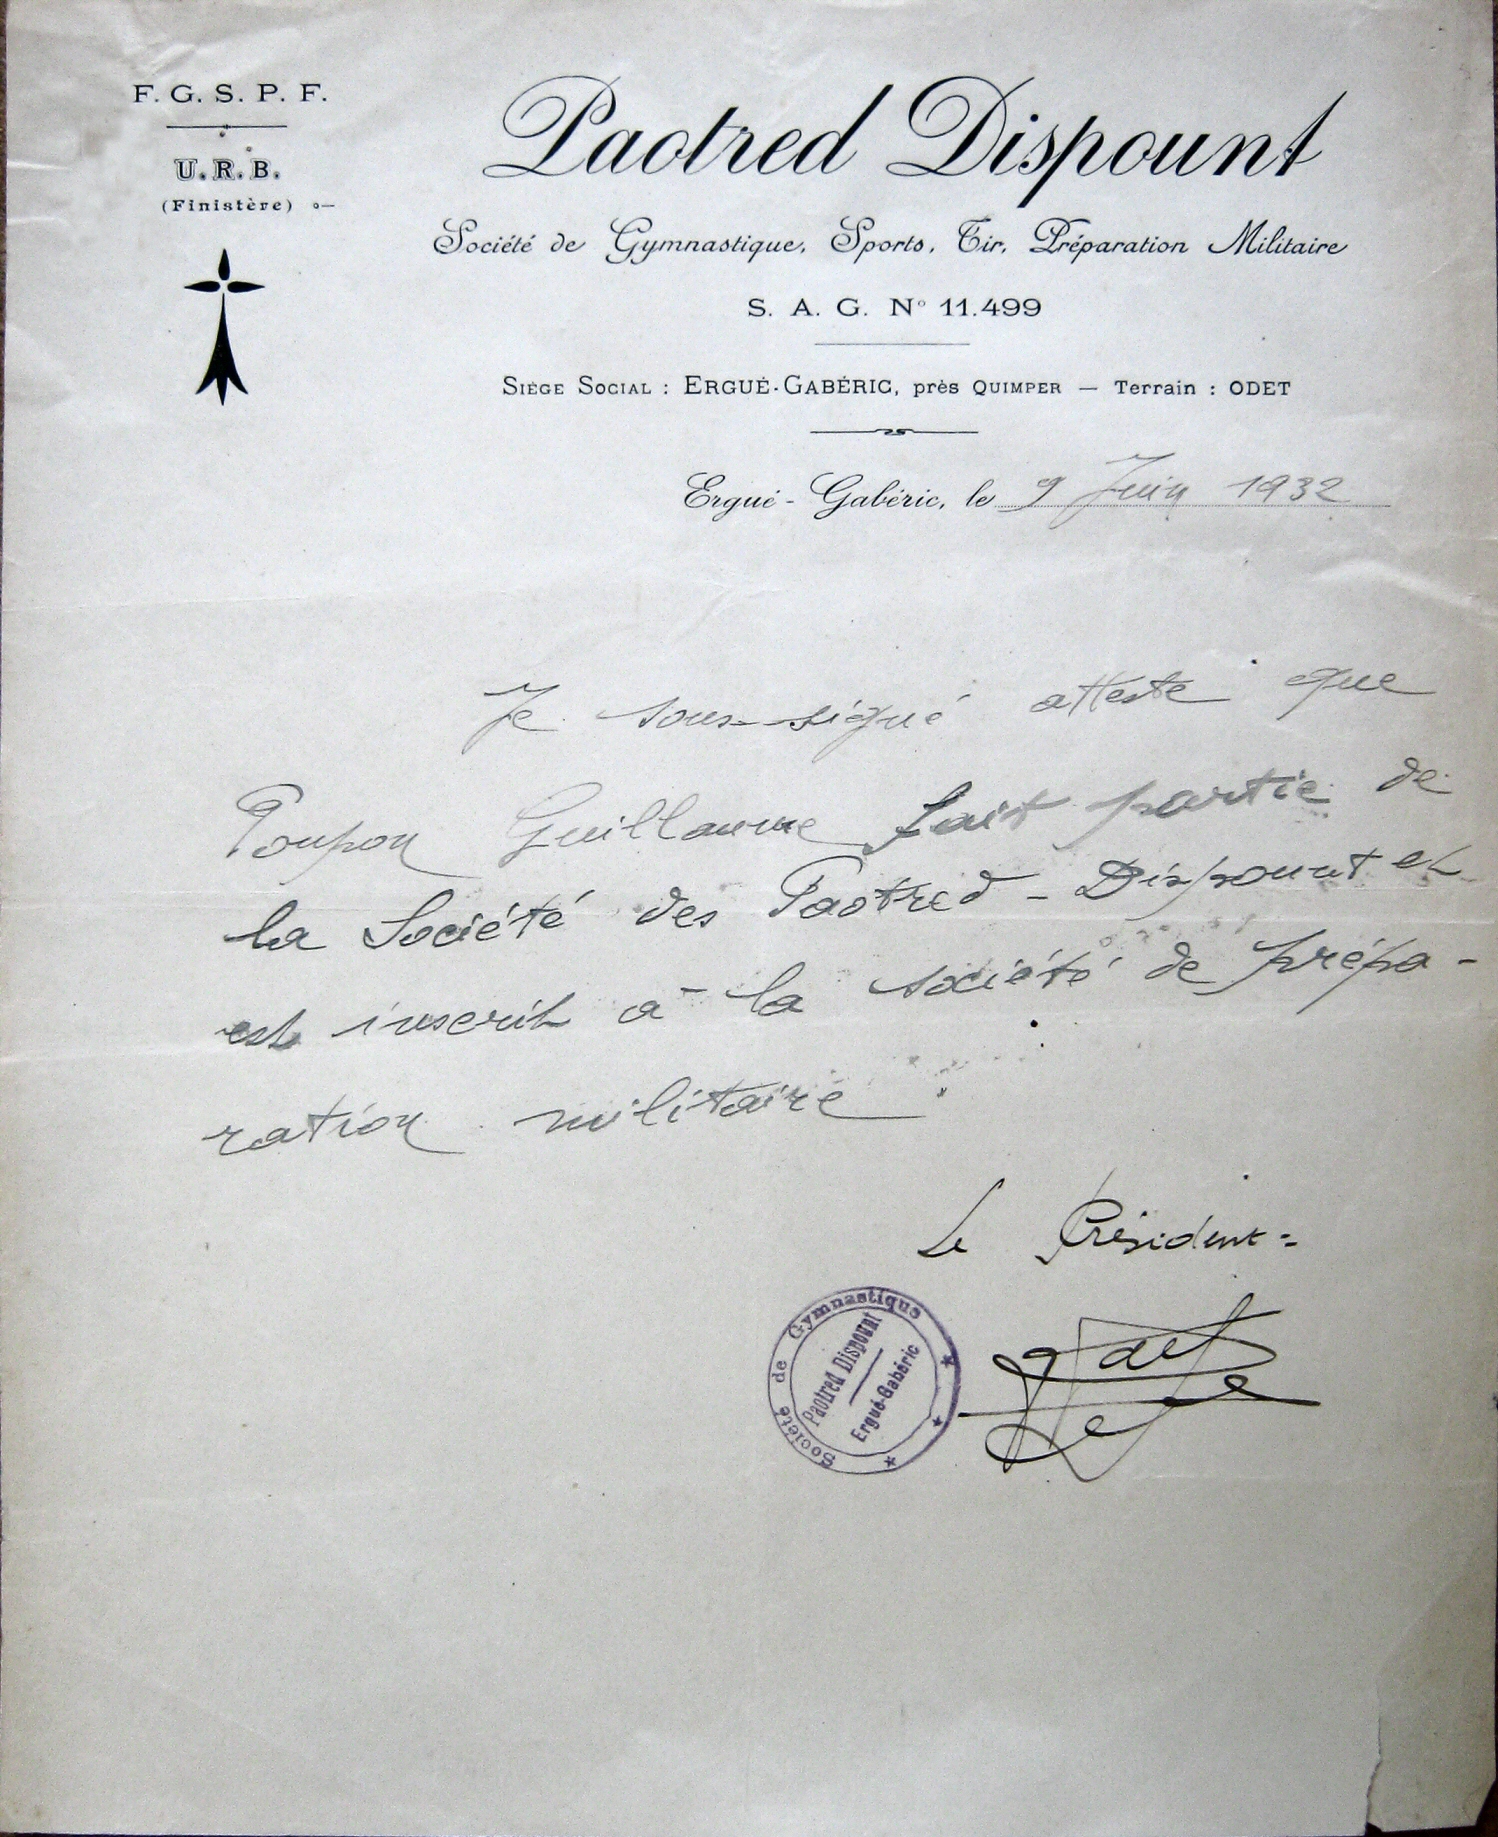 F. G. S. P. F.
U.R.B.
(Finistère)
Paotred Dispount
Société de Gymnastique, Sports, Tir, Préparation Militaire
S. A. G. N° 11.499
Siège Social : Ergué-Gabéric, près Quimper — Terrain : ODET
Ergué-Gabéric, le 9 Juin 1932
Je sous-signé atteste que
Poupon Guillaume fait partie de
la Société des Paotred-Dispount et
est inscrit à la société de prépa-
ration militaire.
Le Président =
Société de Gymnastique
Paotred Dispount
Ergué-Gabéric